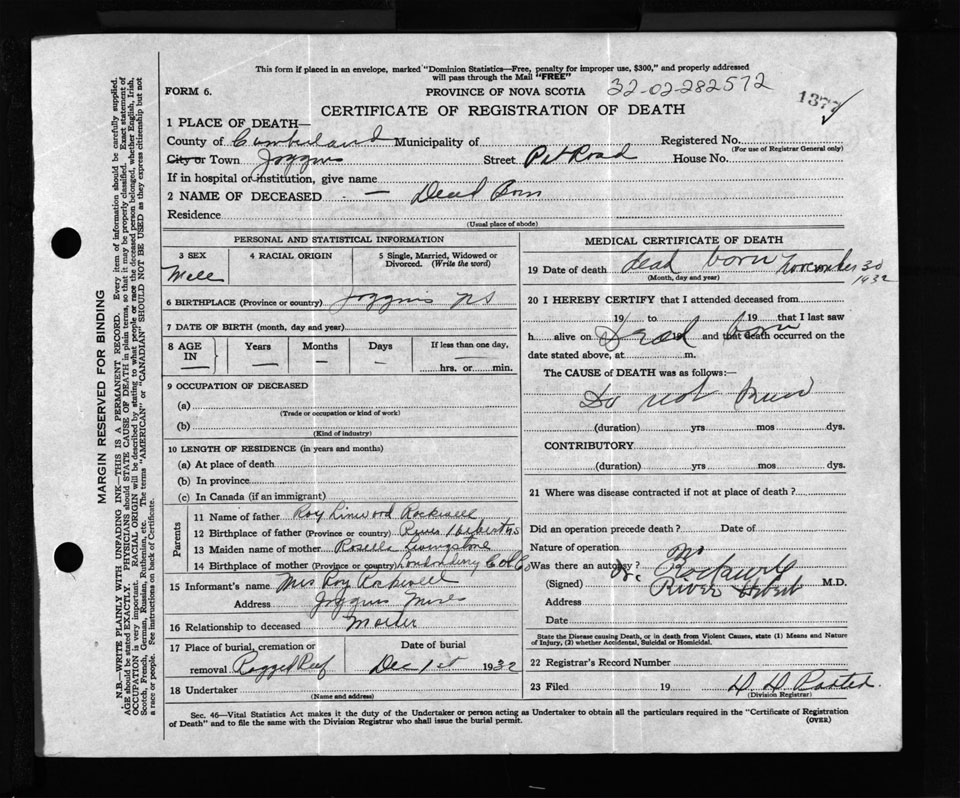 This form if placed in an envelope, marked "Dominion Statistics—Free, penalty for improper use, $300," and properly addressed
will pass through the Mail "FREE"
FORM 6.
PROVINCE OF NOVA SCOTIA 32-02-282572
1377
CERTIFICATE OF REGISTRATION OF DEATH
1 PLACE OF DEATH—
County of Cumberland Municipality of Registered No.
(For use of Registrar General only)
City or Town Joggins Street Pit Road House No.
If in hospital or institution, give name
2 NAME OF DECEASED — Dead Born
Residence
(Usual place of abode)
PERSONAL AND STATISTICAL INFORMATION
3 SEX
4 RACIAL ORIGIN
5 Single, Married, Widowed or Divorced. (Write the word)
6 BIRTHPLACE (Province or country) Joggins NS
7 DATE OF BIRTH (month, day and year)
8 AGE IN } Years — Months — Days — If less than one day, hrs. or min.
9 OCCUPATION OF DECEASED
(a)
(Trade or occupation or kind of work)
(b)
(Kind of industry)
10 LENGTH OF RESIDENCE (in years and months)
(a) At place of death
(b) In province
(c) In Canada (if an immigrant)
Parents
11 Name of father Roy Linwood Rockwell
12 Birthplace of father (Province or country) River Hebert NS
13 Maiden name of mother Rosella Livingstone
14 Birthplace of mother (Province or country) Londonderry Col Co
15 Informant's name Mrs Roy Rockwell
Address Joggins Mines
16 Relationship to deceased Mother
17 Place of burial, cremation or removal Ragged Reef
Date of burial
Dec 1st 1932
18 Undertaker
(Name and address)
MEDICAL CERTIFICATE OF DEATH
19 Date of death dead born November 30
1932
(Month, day and year)
20 I HEREBY CERTIFY that I attended deceased from
19 to 19 that I last saw
h alive on Dead born and that death occurred on the
date stated above, at m.
The CAUSE of DEATH was as follows:—
Do not
(duration) yrs mos dys.
CONTRIBUTORY
(duration) yrs mos dys.
21 Where was disease contracted if not at place of death?
Did an operation precede death? Date of
Nature of operation
Was there an autopsy? No
(Signed) Dr Rockwell M.D.
Address River Hebert
Date
State the Disease causing Death, or in death from Violent Causes, state (1) Means and Nature
of Injury, (2) whether Accidental, Suicidal or Homicidal.
22 Registrar's Record Number
23 Filed 19 H. H.
(Division Registrar)
Sec. 46—Vital Statistics Act makes it the duty of the Undertaker or person acting as Undertaker to obtain all the particulars required in the "Certificate of Registration
of Death" and to file the same with the Division Registrar who shall issue the burial permit.
(OVER)
MARGIN RESERVED FOR BINDING
N.B.—WRITE PLAINLY WITH UNFADING INK—THIS IS A PERMANENT RECORD. Every item of information should be carefully supplied.
AGE should be stated EXACTLY. PHYSICIANS should STATE CAUSE OF DEATH in plain terms, so that it may be properly classified. Exact statement of
OCCUPATION is very important. RACIAL ORIGIN will be described by stating to what people or race the deceased person belonged, whether English, Irish,
Scotch, French, German, Russian, Ruthenian, etc. The terms "AMERICAN" or "CANADIAN" SHOULD NOT BE USED as they express citizenship but not
a race or people. See instructions on back of Certificate.